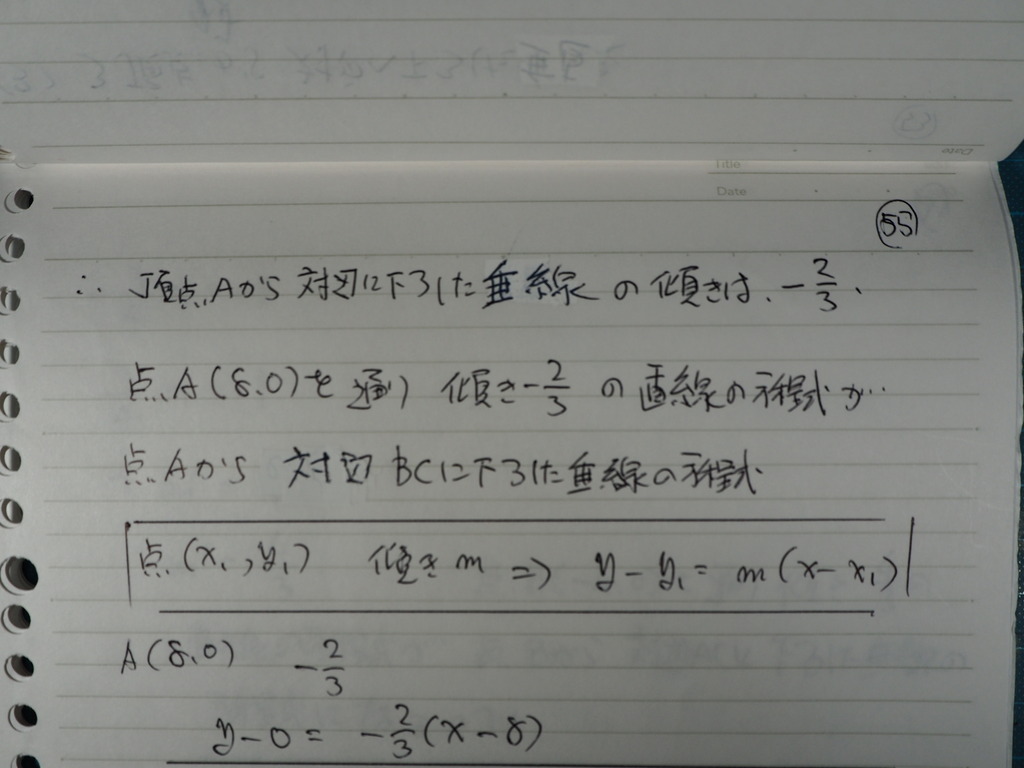 Title
Date
55
∴ 頂点Aから 対辺に下ろした垂線の傾きは、-2/3、
点A(8,0)を通り 傾き-2/3の直線の方程式が…
点Aから 対辺BCに下ろした垂線の方程式
点(x₁,y₁) 傾きm ⇒ y-y₁=m(x-x₁)
A(8,0) -2/3
y-0=-2/3(x-8)